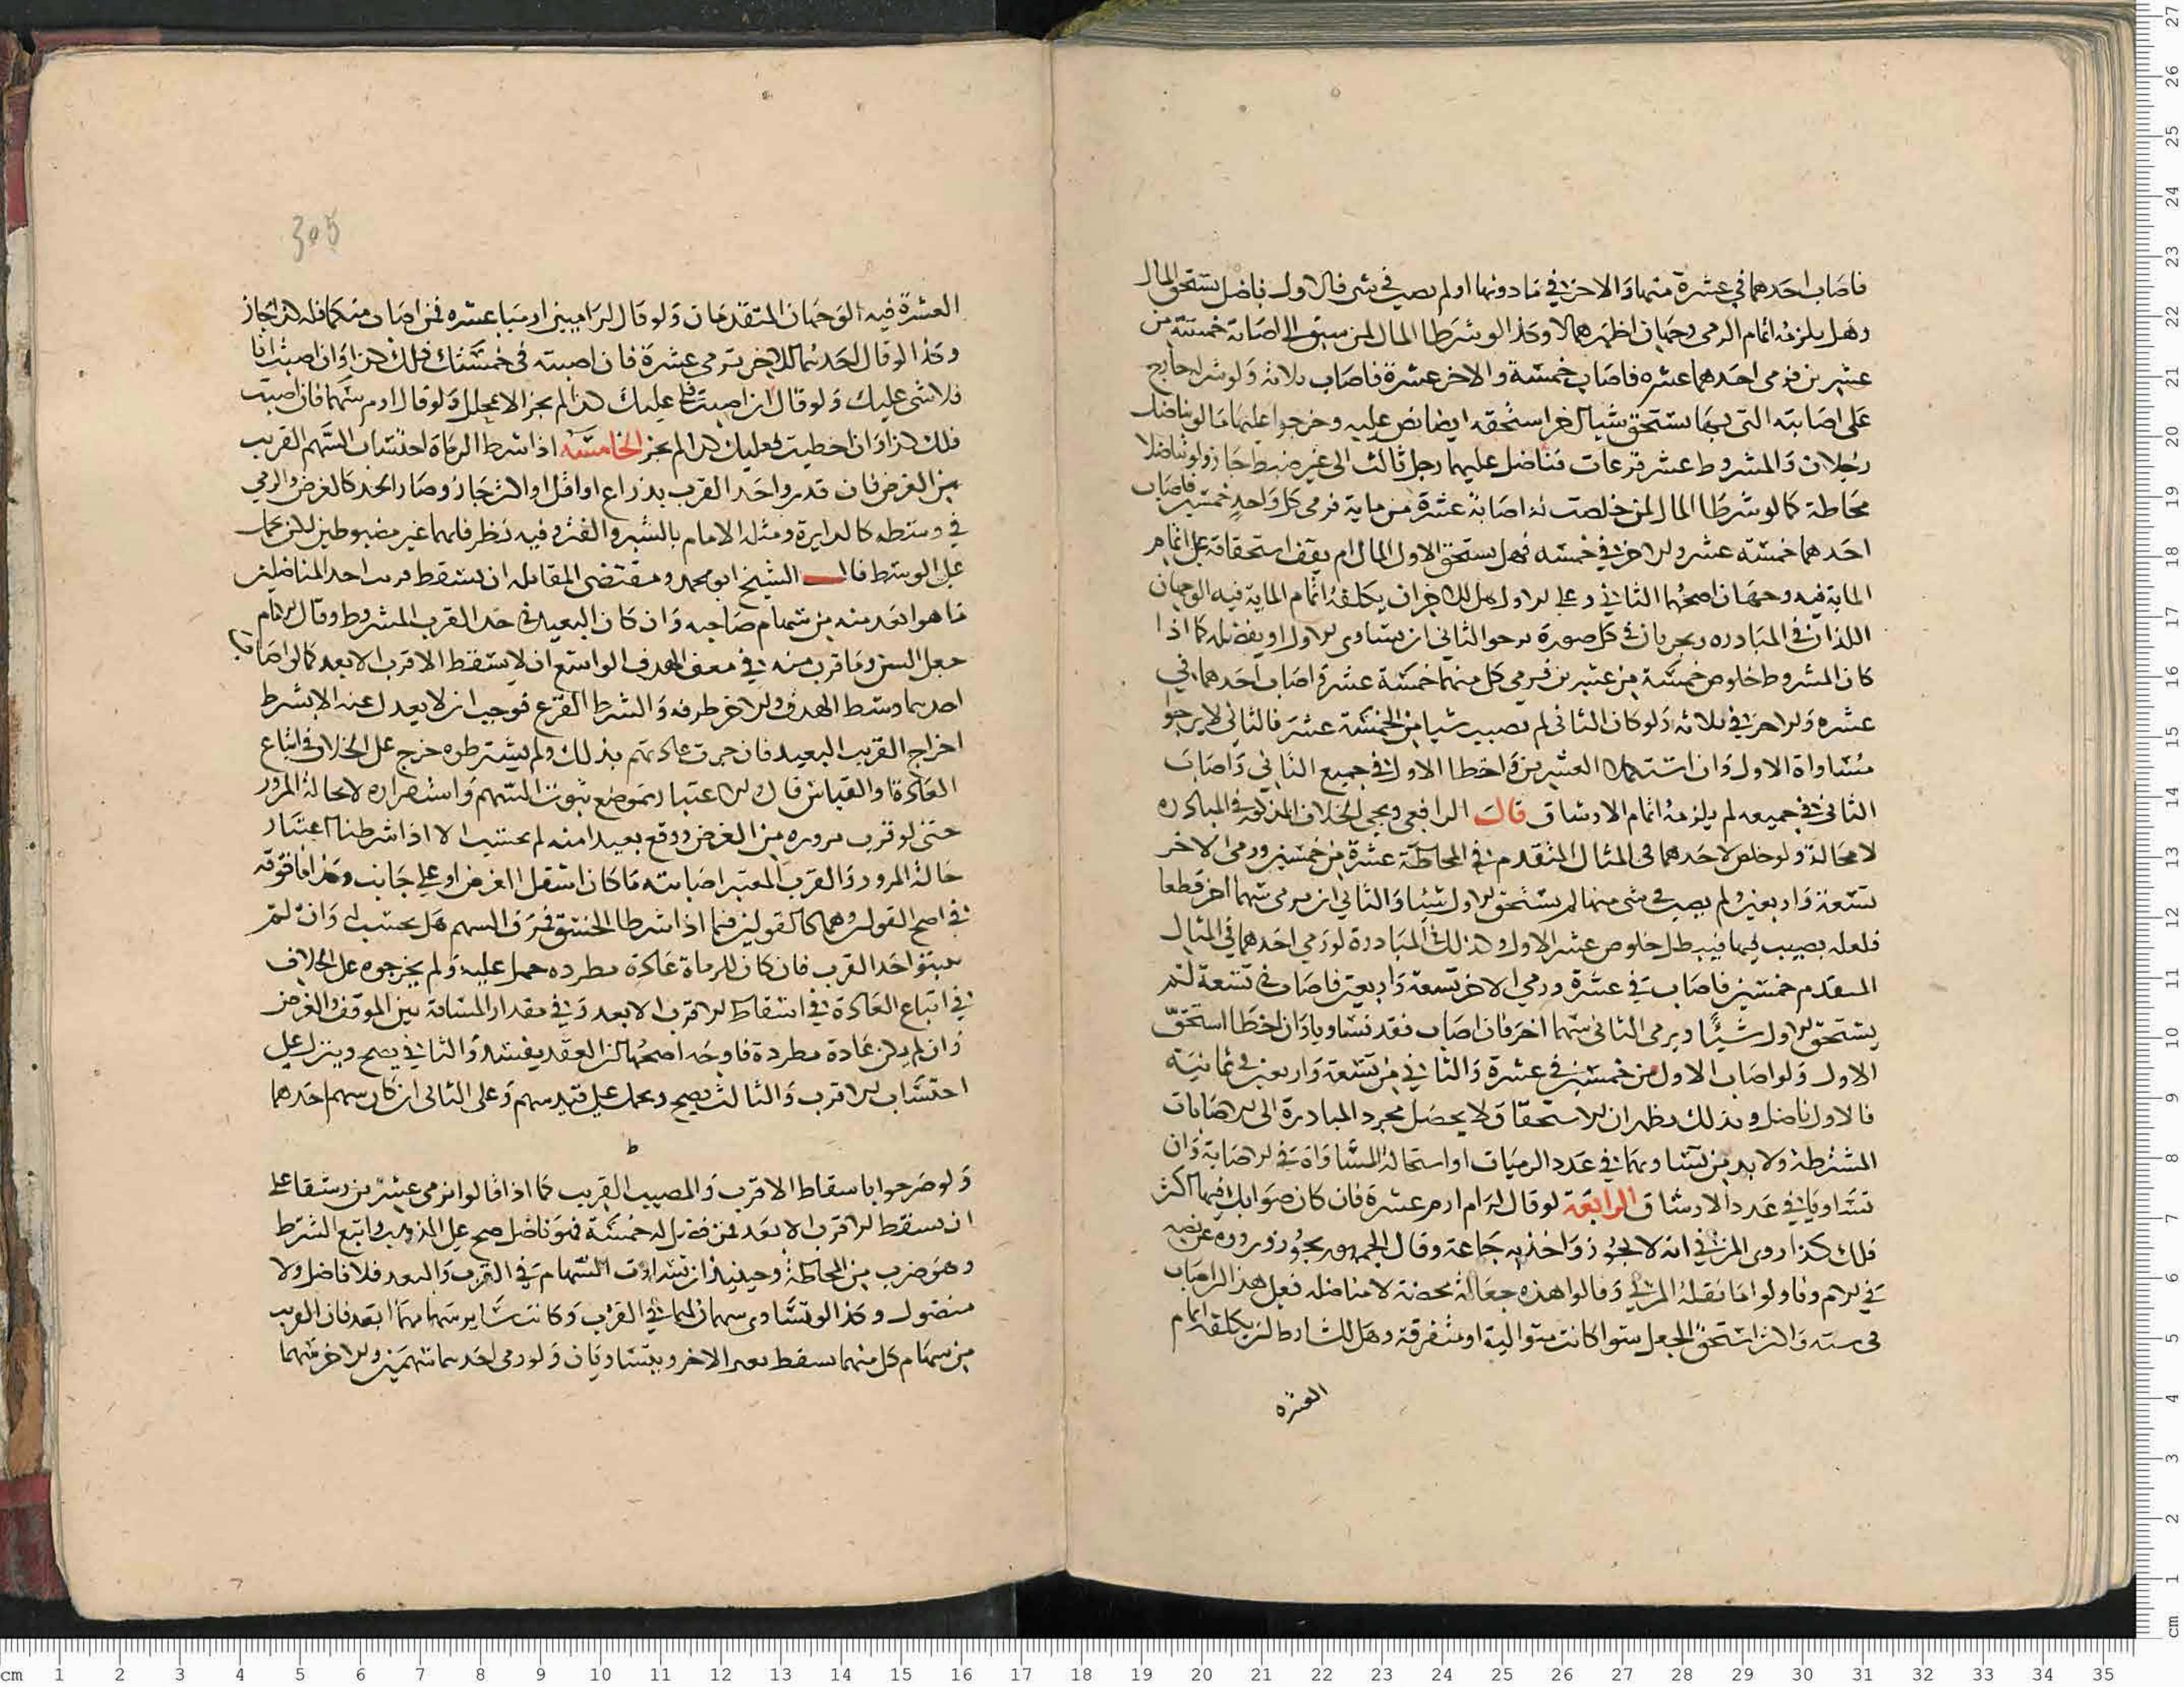 فاصاب احدهما في عشرة منها والاخر في ما دونها او لم يصب في شي فالاول ناضل يستحق المال
وهل يلزمه اتمام الرمي وجهان اظهرهما لا وكذا لو شرطا المال لمن سبق الى اصابة خمسة من
عشرين فرمى احدهما عشره فاصاب خمسة والاخر عشرة فاصاب ثلاثة ولو شرط
على اصابته التي بها يستحق شيا اخر استحقه ايضا نص عليه وخرجوا عليها ما لو تناضل
رجلان والمشروط عشر قرعات فناضل عليهما رجل ثالث الى غير ضبط جاز ولو تناضلا
محاطة كما لو شرطا المال لمن خلصت له اصابة عشرة من ماية فرمى كل واحد خمسين فاصاب
احدهما خمسة عشر والاخر في خمسه فهل يستحق الاول المال ام يقف استحقاقه على اتمام
الماية فيه وجهان اصحهما الثاني وعلى الاول هل للاخر ان يكلفه اتمام الماية فيه الوجهان
اللذان في المبادره ويجريان في كل صورة يرجوا الثاني ان يساوي الاول او يفضله كما اذا
كان المشروط خلوص خمسة من عشرين فرمى كل منهما خمسة عشرة اصاب احدهما في
عشره والاخر في ثلاثه ولو كان الثاني لم يصيب شيا من الخمسة عشر فالثاني لا يرجوا
مساواة الاول وان استكملا العشرين واخطا الاول في جميع الثاني واصاب
الثاني في جميعه لم يلزمه اتمام الارشاق قال الرافعي ويجي الخلاف المذكور في المبادره
لا محالة ولو خلص لاحدهما في المثال المتقدم في المحاطة عشرة من خمسين ورمى الاخر
تسعة واربعين ولم يصب في شي منها لم يستحق الاول شيئا والثاني ان يرمي سهما اخر قطعا
فلعله يصيب فيها فيبطل خلوص عشر الاول وكذلك المبادرة لو رمى احدهما في المثال
المتقدم خمسين فاصاب في عشرة ورمى الاخر تسعة واربعين فاصاب في تسعة لم
يستحق الاول شيئا ويرمى الثاني سهما اخر فان اصاب فقد تساويا وان اخطا استحق
الاول ولو اصاب الاول من خمسين في عشرة والثاني من تسعة واربعين في ثمانية
فالاول ناضل وبذلك يظهر ان الاستحقاق لا يحصل بمجرد المبادرة الى الاصابات
المشترطة ولا بد من تساويهما في عدد الرميات او استحالة المساواة في الاصابة وان
تساويا في عدد الارشاق الرابعة لو قال لرام ارم عشرة فان كان صوابك فيها اكثر
فلك كذا روى المزني انه لا يجوز واخذ به جماعة وقال الجمهور يجوز ورووه عن نصه
في الام وتاولوا ما نقله المزني وقالوا هذه جعالة محضة لا مناضله فعلى هذا ان اصاب
في سته والاكثر استحق الجعل سوا كانت متوالية او متفرقة وهل للشارط ان يكلفه اتمام
العشره
305
العشرة فيه الوجهان المتقدمان ولو قال لراميين ارميا عشره فمن اصاب منكما فله كذا جاز
وكذا لو قال احدهما للاخر نرمي عشرة فان اصبته في خمستك فلك كذا وان اصبت انا
فلا شي عليك ولو قال ان اصبت فلي عليك كذا لم يجز الا بمحلل ولو قال ارم سهما فان اصبت
فلك كذا وان اخطيت فعليك كذا لم يجز الخامسه اذا شرط الرماة احتساب السهم القريب
من الغرض فان قدروا حد القرب بذراع او اقل او اكثر جاز وصار الحد كالغرض والرمي
في وسطه كالدايرة ومثله الامام بالشبر والفتر وفيه نظر فانهما غير مضبوطين لكن يحمل
على الوسط قال الشيخ ابو محمد ومقتضى المقابله ان يسقط قرب احد المناضلين
ما هو ابعد منه من سهام صاحبه وان كان البعيد في حد القرب المشروط وقال الامام
جعل السن وما قرب منه في معنى الهدف الواسع ان لا يسقط الاقرب الابعد كما لو اصاب
احدهما وسط الهدف والاخر طرفه والشرط القرع فوجب ان لا يعدل عنه الا بشرط
اخراج القريب البعيد فان جرت عادتهم بذلك ولم يشترطوه خرج على الخلاف في اتباع
العادة والقياس قال والاعتبار بموضع ثبوت السهم واستقراره لا بحالة المرور
حتى لو قرب مروره من الغرض ووقع بعيدا منه لم يحتسب الا اذا شرطنا اعتبار
حالة المرور والقرب المعتبر اصابته ما كان اسفل الغرض او على جانب وكذا ما فوقه
في اصح القولين وهما كالقولين فيما اذا شرطا الخسق فمرق السهم هل يحتسب له وان لم
يبينوا حد القرب فان كان للرماة عادة مطرده حمل عليه ولم يخرجوه على الخلاف
في اتباع العادة في اسقاط الاقرب الابعد وفي مقدار المسافة بين الموقف والغرض
وان لم يكن عادة مطردة فاوجه اصحها ان العقد يفسد والثاني يصح وينزل على
احتساب الاقرب والثالث يصح ويحمل على قيد سهم وعلى الثاني ان كان سهم احدهما
ط
ولو صرحوا باسقاط الاقرب والمصيب القريب كما اذا قالوا نرمي عشرين رشقا على
ان يسقط الاقرب الابعد فمن فضل له خمسة فهو ناضل صح على المذهب واتبع الشرط
وهو ضرب من المحاطة وحينيذ ان تساوت السهام في القرب والبعد فلا فاضل ولا
مفضول وكذا لو تساوى سهمان لهما في القرب وكانت ساير سهامهما ابعد فان القريب
من سهام كل منهما يسقط بعيد الاخر ويتساويان ولو رمى احدهما سهمين والاخر منهما